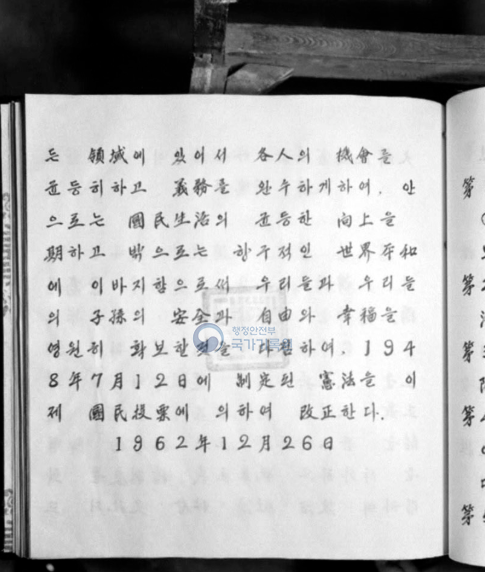 든 領域에 있어서 各人의 機會를
균등히하고 義務를 완수하게하여, 안
으로는 國民生活의 균등한 向上을
期하고 밖으로는 항구적인 世界平和
에 이바지함으로써 우리들과 우리들
의 子孫의 安全과 自由와 幸福을
영원히 확보할것을 다짐하여, 194
8年7月12日에 制定된 憲法을 이
제 國民投票에 의하여 改正한다.
1962年12月26日
행정안전부
국가기록원
第
第2
第3
第4
第5